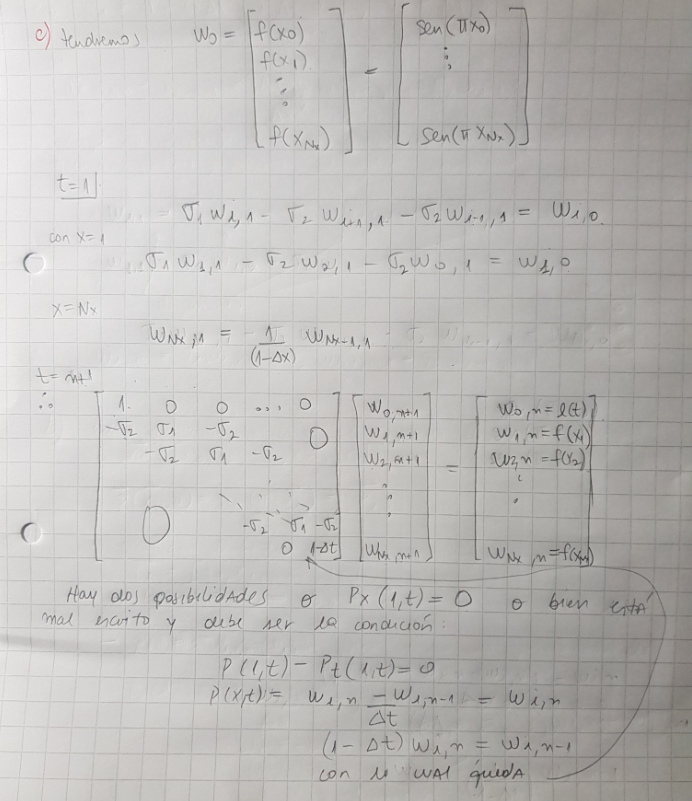 c) tendremos W₀ = [f(x₀) f(x₁) ⋮ f(x_Nx)] = [sen(πx₀) ⋮ sen(πx_Nx)]
t=1
σ₁ w_i,1 - σ₂ w_i+1,1 - σ₂ w_i-1,1 = w_i,0
con x=1
σ₁ w_1,1 - σ₂ w_2,1 - σ₂ w_0,1 = w_1,0
x=Nx
w_Nx,1 = 1/(1-Δx) w_Nx-1,1
t=n+1
∴
1 0 0 ... 0 w_0,n+1 w_0,n = l(t)
-σ₂ σ₁ -σ₂ 0 w_1,n+1 w_1,n = f(x₁)
-σ₂ σ₁ -σ₂ w_2,n+1 = w_2,n = f(x₂)
0 -σ₂ σ₁ -σ₂
0 1-Δt w_Nx,n+1 w_Nx,n = f(x_Nx)
Hay dos posibilidades o Px(1,t) = 0 o bien está
mal escrito y debe ser la condición:
P(1,t) - Pt(1,t) = 0
P(x,t) = w_i,n - w_i,n-1 / Δt = w_i,n
(1 - Δt) w_i,n = w_i,n-1
con lo cual queda